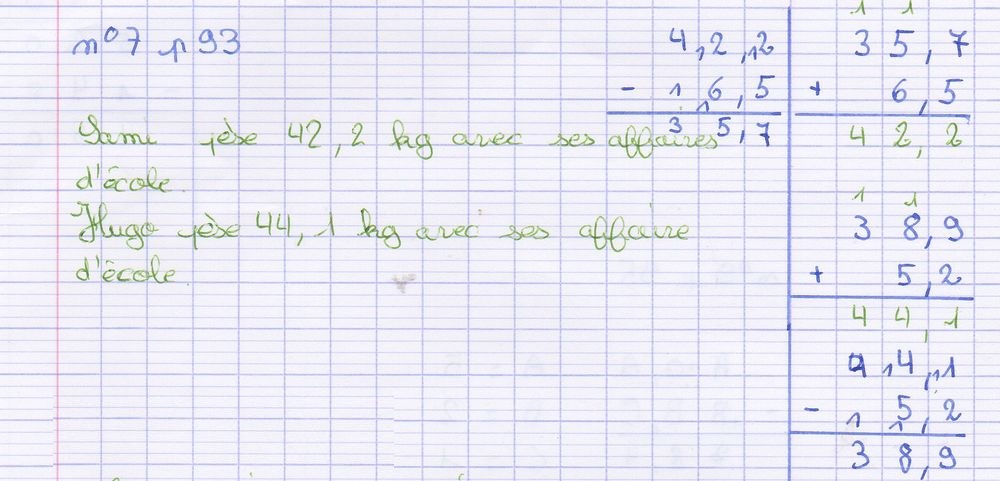 n°7 p 93
Sami pèse 42,2 kg avec ses affaires
d'école.
Hugo pèse 44,1 kg avec ses affaire
d'école.
4 12,12
- 1 16,5
3 5,7
1 1
3 5,7
+ 6,5
4 2,2
1 1
3 8,9
+ 5,2
4 4,1
4 14,11
- 1 15,2
3 8,9